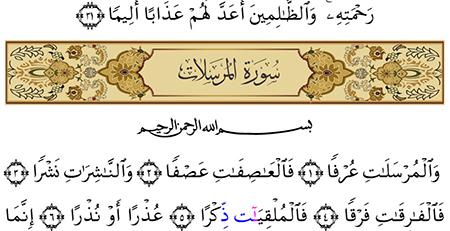 رَحْمَتِهِۦ وَالظَّالِمِينَ أَعَدَّ لَهُمْ عَذَابًا أَلِيمًا ﴿٣١﴾
سُورَةُ المُرْسَلَات
بسم الله الرحمن الرحيم
وَالْمُرْسَلَاتِ عُرْفًا ﴿١﴾ فَالْعَاصِفَاتِ عَصْفًا ﴿٢﴾ وَالنَّاشِرَاتِ نَشْرًا ﴿٣﴾
فَالْفَارِقَاتِ فَرْقًا ﴿٤﴾ فَالْمُلْقِيَاتِ ذِكْرًا ﴿٥﴾ عُذْرًا أَوْ نُذْرًا ﴿٦﴾ إِنَّمَا